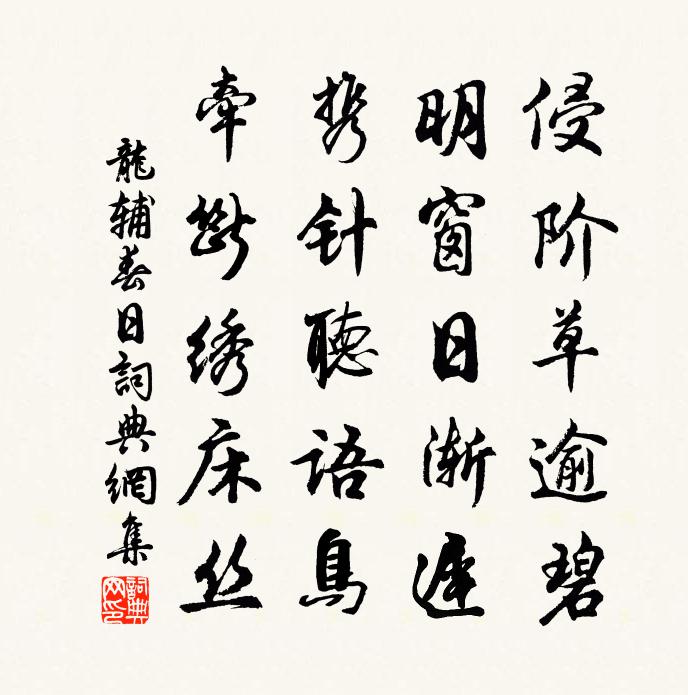 侵阶草逾碧
明窗日渐遲
携针聽語鳥
牽断绣床丝
龍辅春日詞典網集
詞典网印